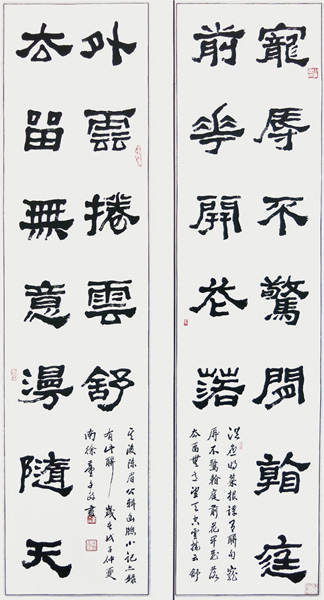 寵辱不驚閒看庭
前花開花落
洪應明菜根譚有聯句寵
辱不驚看庭前花開花落
去留無意望天空雲捲雲舒
去留無意漫隨天
外雲捲雲舒
其後陳眉公輯幽牕小記亦錄
有此聯 歲在戊子仲夏
南徐童子